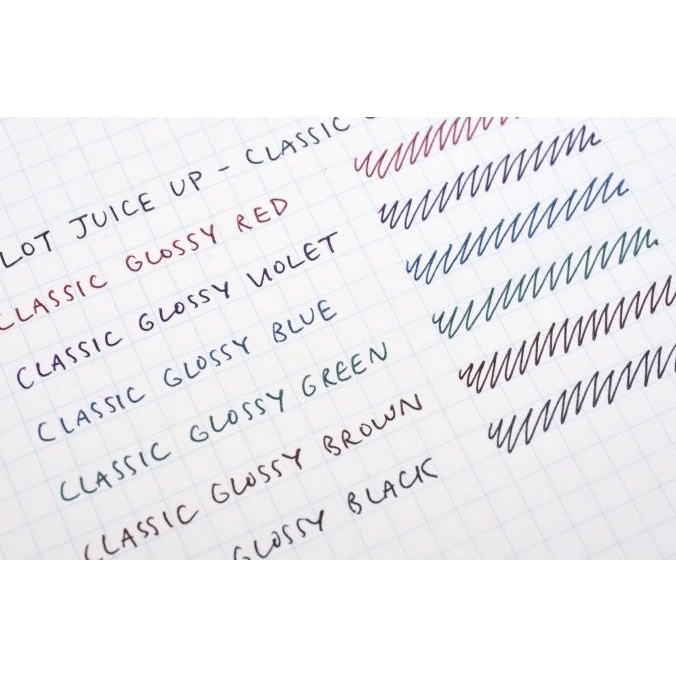 LOT JUICE UP - CLASSIC
CLASSIC GLOSSY RED
CLASSIC GLOSSY VIOLET
CLASSIC GLOSSY BLUE
CLASSIC GLOSSY GREEN
CLASSIC GLOSSY BROWN
GLOSSY BLACK